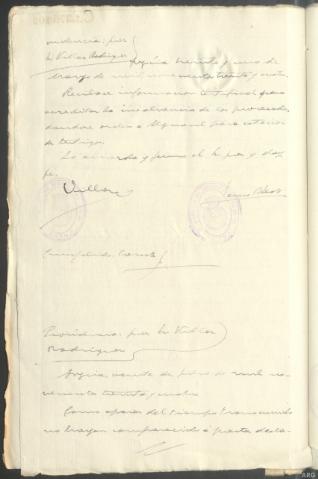 Providencia: juez
Sr Villar Rodriguez } Arzúa treinta y uno de
mayo de mil novecientos treinta y cuatro.
Recíbase información testifical para
acreditar la insolvencia de los procesados,
dándose orden a Alguacil para citación
de testigos.
Lo acuerda y firma el Sr Juez y doy
fe.
Villar
Cumplido. Consta
Providencia: juez Sr Villar
Rodriguez
Arzúa, veinte de julio de mil no-
vecientos treinta y cuatro
Como apesar del tiempo transcurrido
no hayan comparecido a prestar decla-